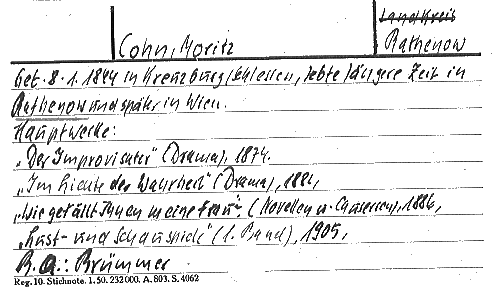 Cohn, Moritz
Landkreis
Rathenow
Geb. 8.1.1844 in Kreuzburg/Schlesien, lebte längere Zeit in
Rathenow und später in Wien.
Hauptwerke:
„Der Improvisator" (Drama), 1874.
„Im Lichte der Wahrheit" (Drama), 1881,
„Wie gefällt Ihnen meine Frau" (Novellen u. Causerien), 1886,
„Lust- und Schauspiele" (1. Band), 1905,
B.A.: Brümmer
Reg. 10. Stichnote. 1. 50. 232000. A. 803. S. 4062